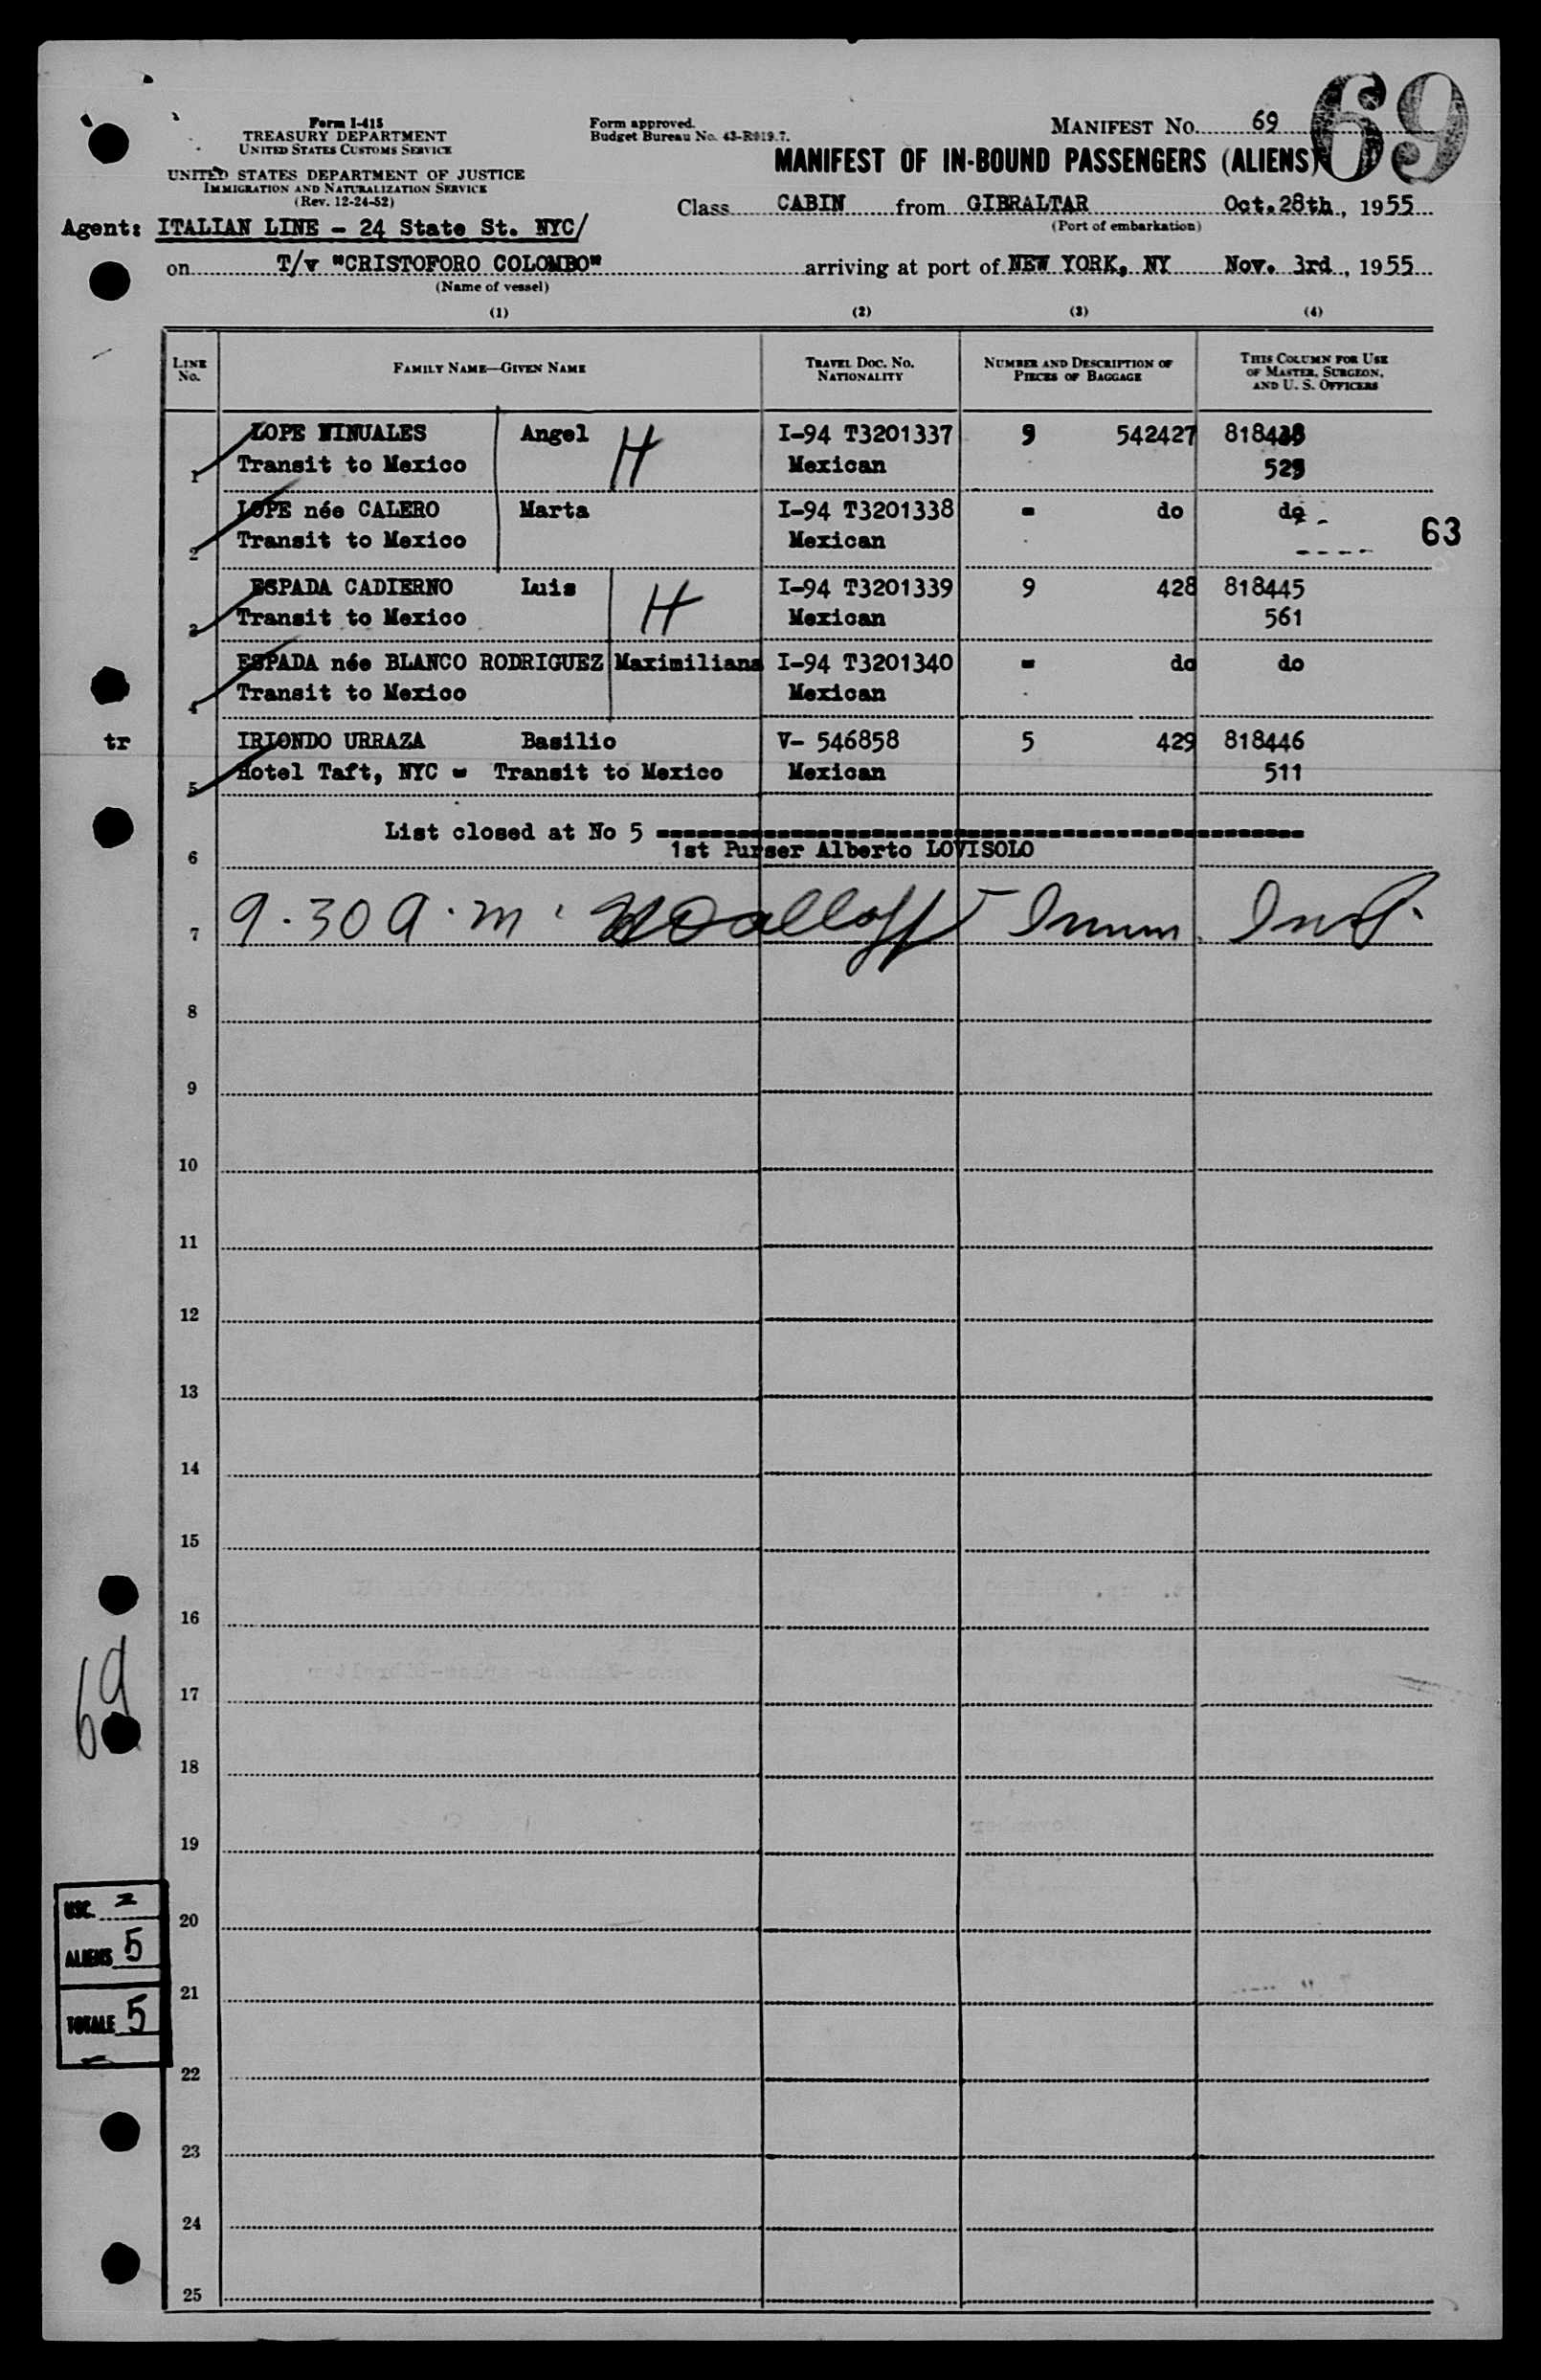 Form I-415
TREASURY DEPARTMENT
UNITED STATES CUSTOMS SERVICE
UNITED STATES DEPARTMENT OF JUSTICE
IMMIGRATION AND NATURALIZATION SERVICE
(Rev. 12-24-52)
Form approved.
Budget Bureau No. 43-R019.7.
MANIFEST NO. 69
69
MANIFEST OF IN-BOUND PASSENGERS (ALIENS)
Class CABIN from GIBRALTAR Oct. 28th, 1955
(Port of embarkation)
Agent: ITALIAN LINE - 24 State St. NYC/
on T/v "CRISTOFORO COLOMBO" arriving at port of NEW YORK, NY Nov. 3rd, 1955
(Name of vessel)
(1) (2) (3) (4)
LINE No. FAMILY NAME—GIVEN NAME TRAVEL DOC. NO. NATIONALITY NUMBER AND DESCRIPTION OF PIECES OF BAGGAGE THIS COLUMN FOR USE OF MASTER, SURGEON, AND U. S. OFFICERS
LOPE Angel H I-94 T3201337 9 542427
1 Transit to Mexico Mexican
LOPE née CALERO Marta I-94 T3201338 - do do
2 Transit to Mexico Mexican
63
ESPADA CADIERNO Luis H I-94 T3201339 9 428 818445
3 Transit to Mexico Mexican 561
ESPADA née BLANCO RODRIGUEZ Maximiliana I-94 T3201340 - do do
4 Transit to Mexico Mexican
tr IRIONDO URRAZA Basilio V- 546858 5 429 818446
5 Hotel Taft, NYC - Transit to Mexico Mexican 511
List closed at No 5
6 1st Purser Alberto LOVISOLO
7 9.30 a.m. Immn. Insp.
8
9
10
11
12
13
14
15
16
69
17
18
19
USC.
20
ALIENS 5
21
TOTALE 5
22
23
24
25